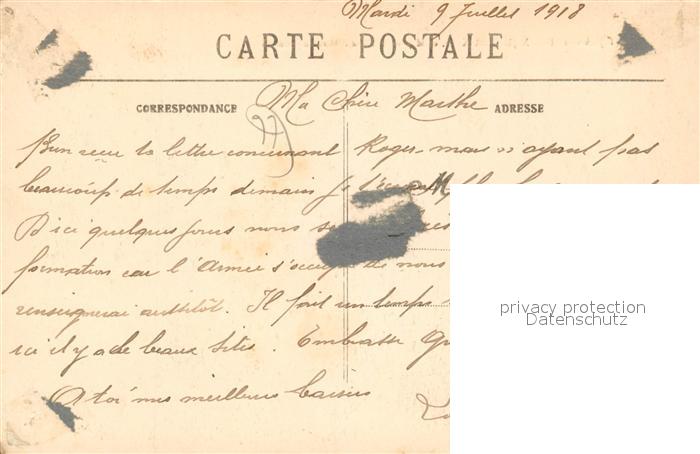 Mardi 9 Juillet 1918
CARTE POSTALE
CORRESPONDANCE
Ma Chère Marthe
ADRESSE
Bien reçu ta lettre concernant Roger mais n'ayant pas
beaucoup de temps demain je t'écrirai M
D'ici quelques jours nous
formation car l'Armée s'occupe de nous
renseignerai aussitôt. Il fait un temps
ici il y a de beaux sites. Embrasse
A toi mes meilleurs baisers
privacy protection
Datenschutz